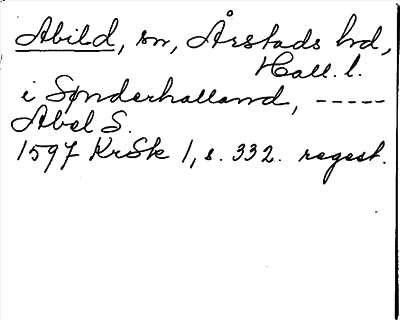 Abild, sn, Årstads hd,
Hall. l.
i Sønderhalland, -----
Abel S.
1597 KrSk 1, s. 332. regest.